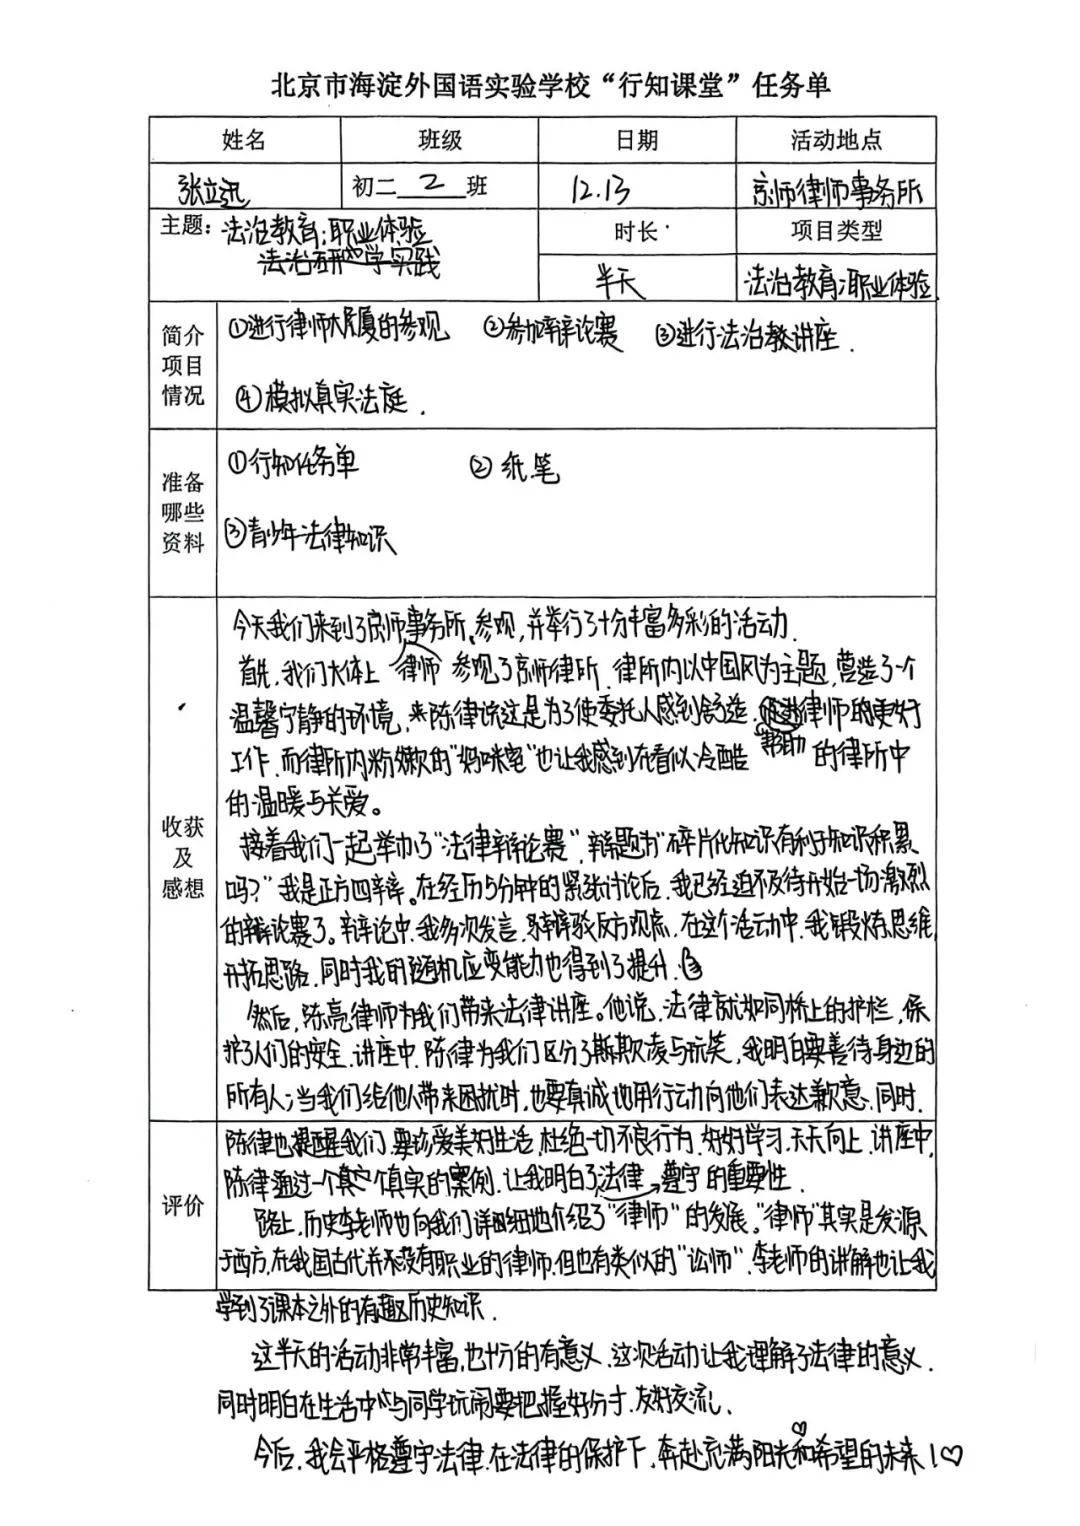 北京市海淀外国语实验学校“行知课堂”任务单
姓名 班级 日期 活动地点
张立迅 初二 2 班 12.13 京师律师事务所
主题：法治教育；职业体验 时长 项目类型
法治研学实践 半天 法治教育；职业体验
简介项目情况
①进行律师大厦的参观 ②参加辩论赛 ③进行法治教讲座.
④模拟真实法庭.
准备哪些资料
①行知任务单 ②纸.笔
③青少年法律知识
收获及感想
今天我们来到了京师律师事务所参观,并举行了十分丰富多彩的活动.
首先,我们大体上参观了京师律所.律所内以中国风为主题,营造了一个
温馨宁静的环境,陈律说这是为了使委托人感到舒适.帮助律师的更好
工作.而律所内粉嫩的“妈咪室”也让我感到在看似冷酷的律所中
的温暖与关爱。
接着我们一起举办了“法律辩论赛”,辩题为“碎片化知识有利于知识积累
吗?”我是正方四辩。在经历5分钟的紧张讨论后,我已经迫不及待开始一场激烈
的辩论赛了。辩论中,我多次发言,辩驳反方观点.在这个活动中,我锻炼思维,
开拓思路.同时我的随机应变能力也得到了提升.
然后,陈亮律师为我们带来法律讲座。他说,法律就如同桥上的护栏,保
护了人们的安全.讲座中,陈律为我们区分了欺凌与玩笑,我明白要善待身边的
所有人;当我们给他人带来困扰时,也要真诚地用行动向他们表达歉意.同时,
评价
陈律也提醒我们,要珍爱美好生活,杜绝一切不良行为.好好学习.天天向上.讲座中,
陈律通过一个个真实的案例,让我明白了遵守法律的重要性.
路上,历史李老师也向我们详细地介绍了“律师”的发展,“律师”其实是发源
于西方,在我国古代并没有职业的律师.但也有类似的“讼师”.李老师的讲解也让我
学到了课本之外的有趣历史知识.
这半天的活动非常丰富,也十分的有意义.这次活动让我理解了法律的意义.
同时明白在生活中与同学玩闹要把握好分寸.友好交流.
今后,我会严格遵守法律.在法律的保护下,奔赴充满阳光和希望的未来!♡